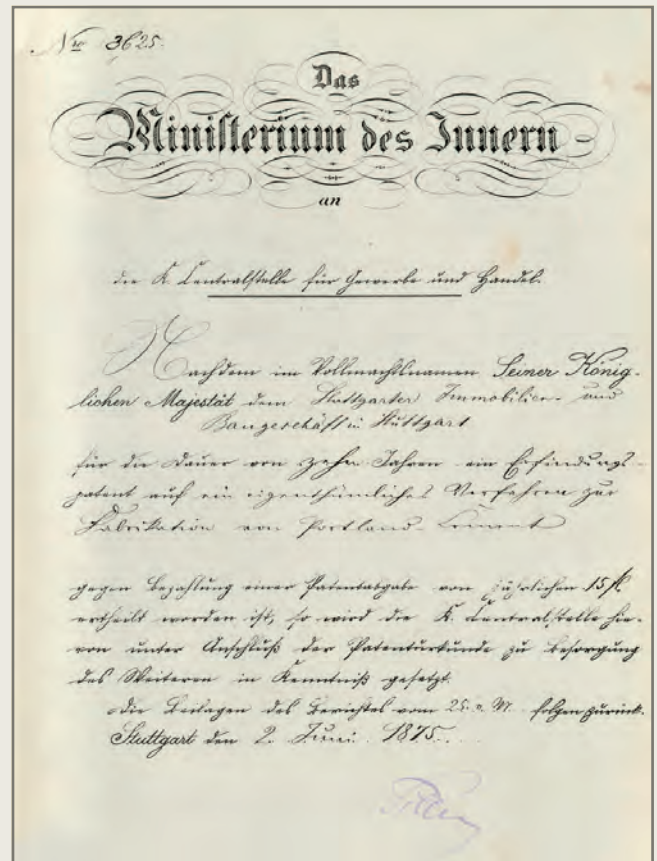 No 3625.
Das
Ministerium des Innern
an
die K. Centralstelle für Gewerbe und Handel.
Nachdem im Vollmachtsnamen Seiner König-
lichen Majestät dem Stuttgarter Immobilien- und
Baugeschäft in Stuttgart
für die Dauer von zehn Jahren ein Erfindungs-
patent auf ein eigenthümliches Verfahren zur
Fabrikation von Portland-Cement
gegen Bezahlung einer Patentabgabe von jährlichen 15 f.
ertheilt worden ist, so wird die K. Centralstelle hie-
von unter Anschluß der Patenturkunde zu Besorgung
des Weiteren in Kenntniß gesetzt.
Die Beilagen des Berichtes vom 25. v. M. folgen zurück.
Stuttgart den 2. Juni 1875.